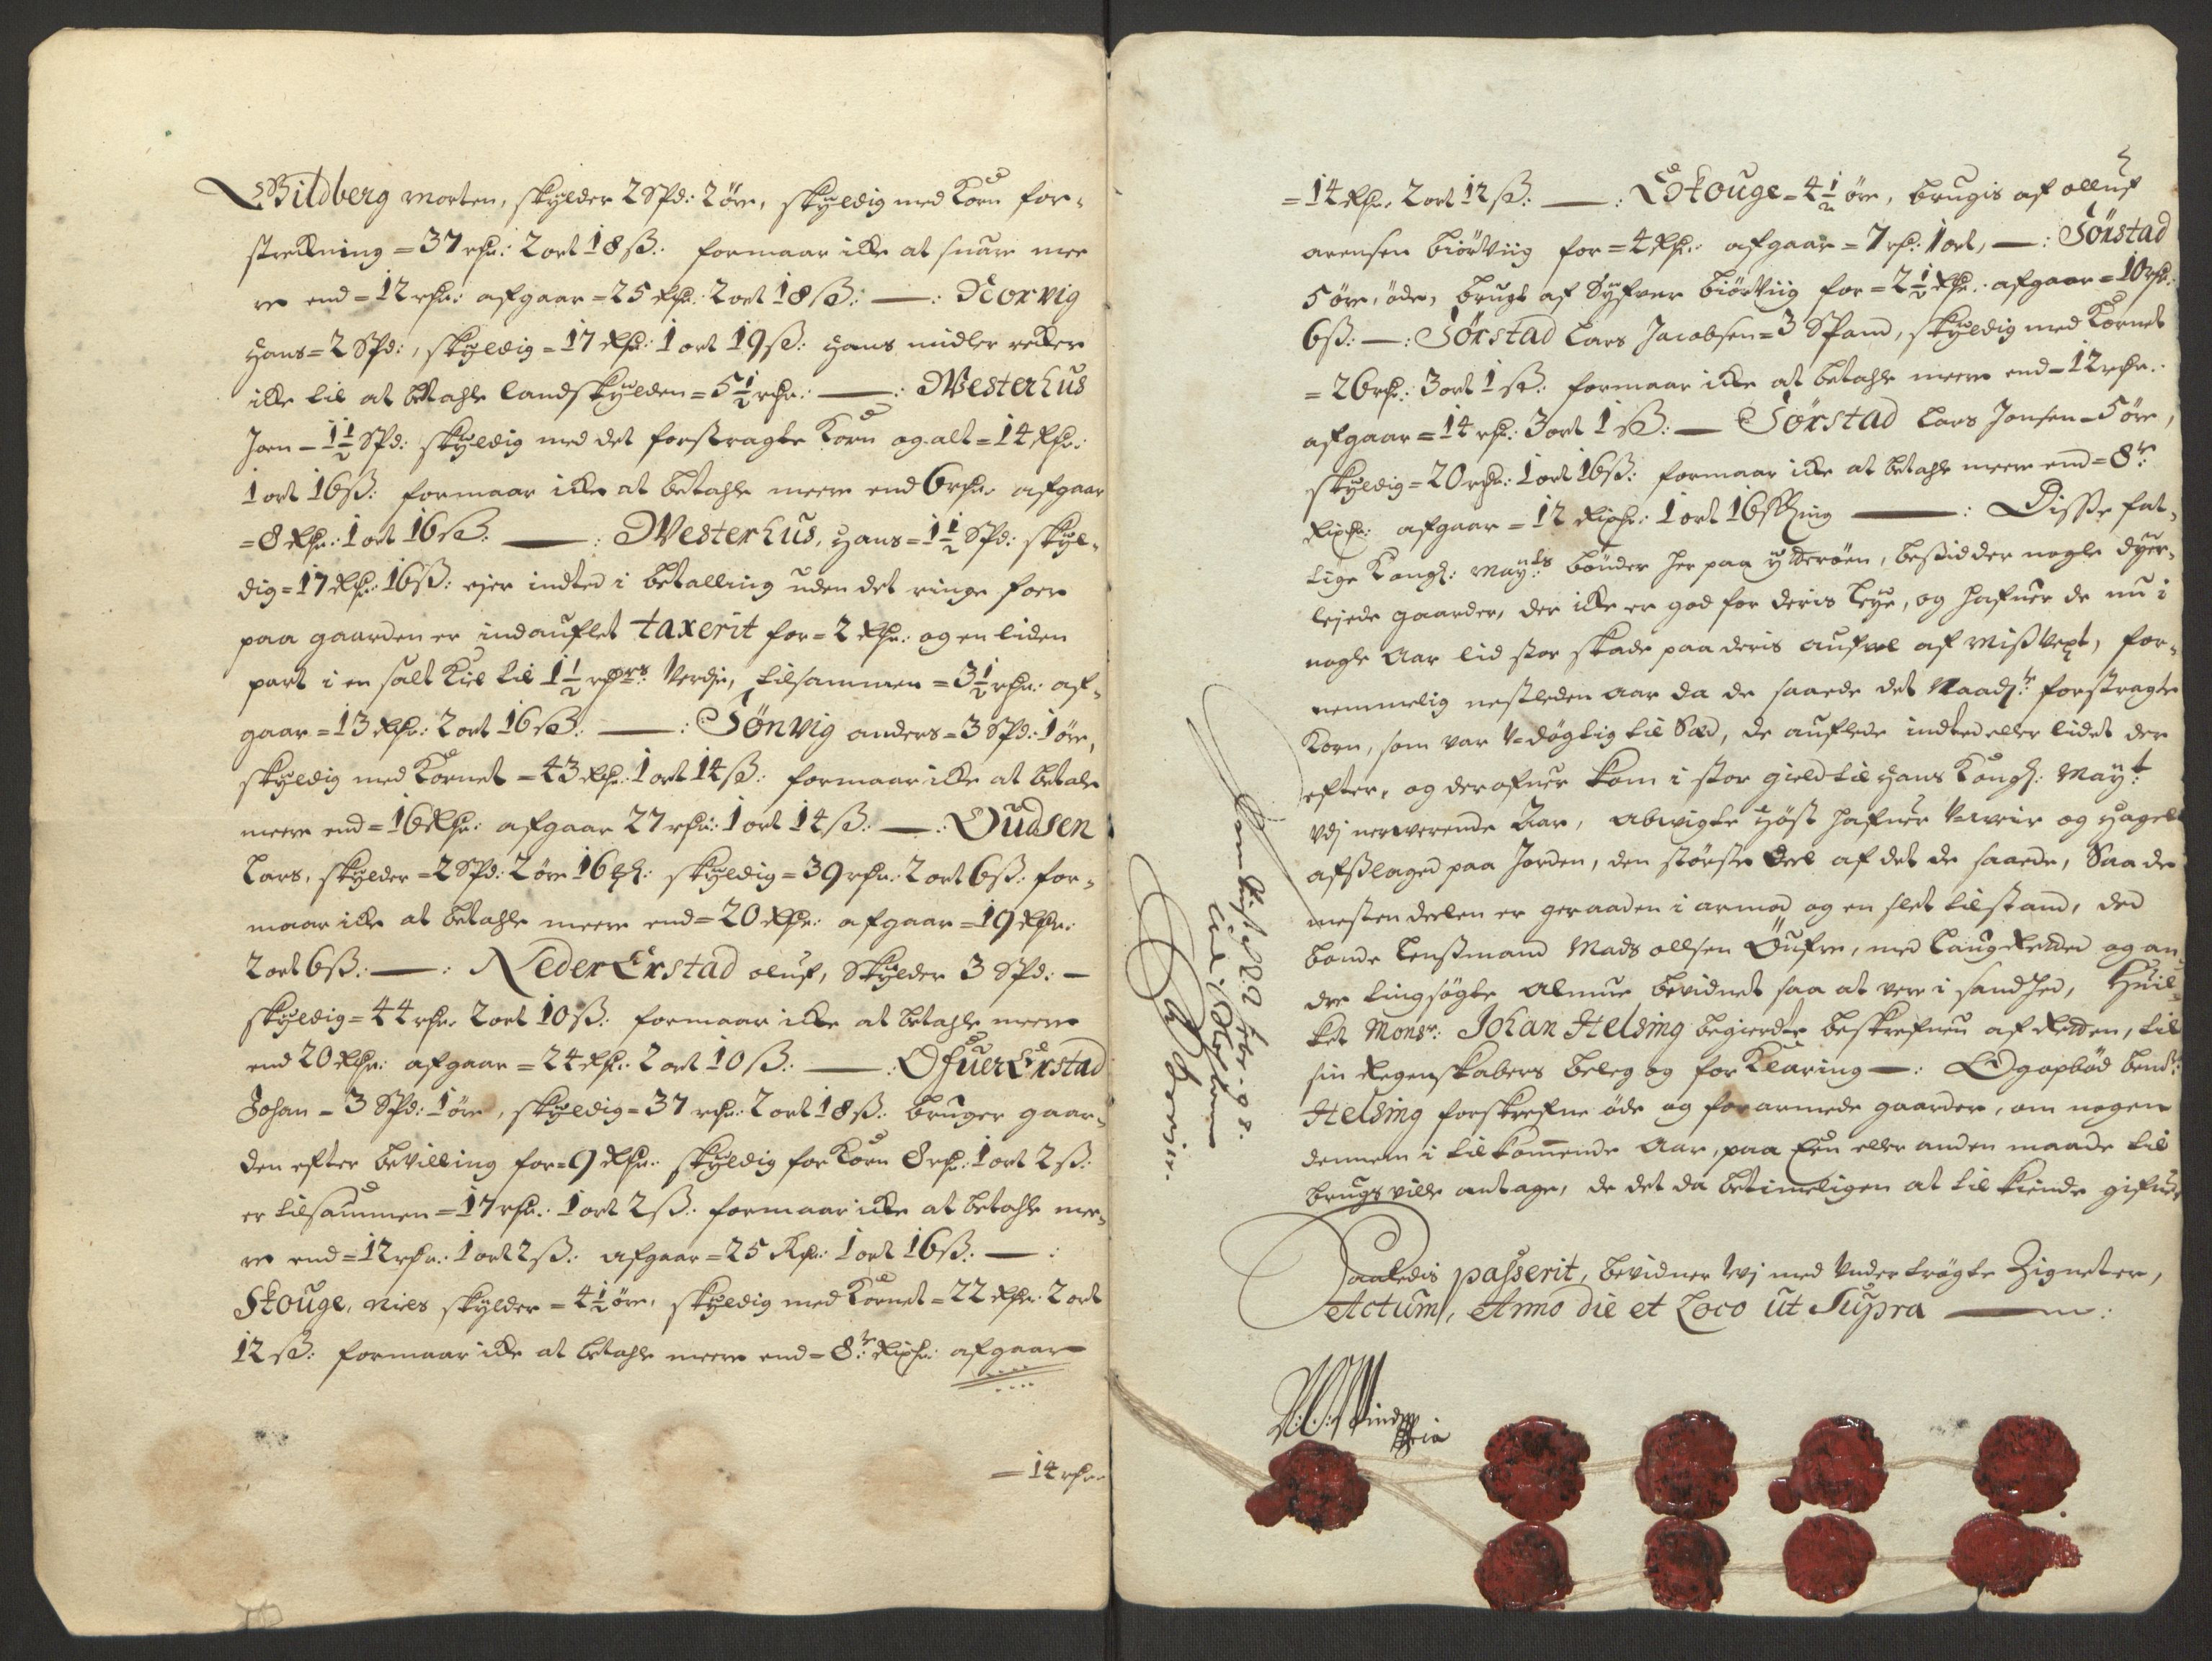 Wildberg Morten, skylder 2 Spd: 2 öre, skyldig med Korn for¬
strekning = 37 rhr: 2 ort 18 ß: formaar icke at suare mee
re end = 12 rhr: afgaar = 25 Rhr: 2 ort 18 ß: —: Norvig
Hans = 2 Spd:, skyldig = 17 Rhr: 1 ort 19 ß: Hans midler recker
icke til at betahle landskylden = 5½ rhr: —: Westerhus
Joen - 1½ Spd: skyldig med det forstragte Korn og alt = 14 Rhr:
1 ort 16 ß: formaar icke at betahle meere end 6 rhr: afgaar
= 8 Rhr: 1 ort 16 ß: —: Westerhus, Hans = 1½ Spd: skyl¬
dig = 17 Rhr: 16 ß: ejer indted i betalling uden det ringe foer
paa gaarden er indauflet taxerit for = 2 Rhr: og en liden
part i en salt Kiel til 1½ rhrs: Verdj, tilsammen = 3½ rhr: af¬
gaar = 13 Rhr: 2 ort 16 ß: —: Sönvig anders = 3 Spd: 1 öre,
skyldig med Kornet = 43 Rhr: 1 ort 14 ß: formaar icke at betale
meere end = 16 Rhr: afgaar 27 rhr: 1 ort 14 ß: —: Oudsen
Lars, skylder = 2 Spd: 2 öre 16 skyldig = 39 rhr: 2 ort 6 ß: for¬
maar icke at betahle meere end = 20 Rhr: afgaar = 19 Rhr:
2 ort 6 ß: —: Neder Erstad oluf, Skylder 3 Spd: —
skyldig = 44 rhr: 2 ort 10 ß: formaar icke at betahle meere
end 20 Rhr: afgaar = 24 Rhr: 2 ort 10 ß: —: Ofuer Erstad
Johan - 3 Spd: 1 öre, skyldig = 37 rhr: 2 ort 18 ß: bruger gaar¬
den efter bevilling for = 9 Rhr: skyldig for Korn 8 rhr: 1 ort 2 ß:
er tilsammen = 17 rhr: 1 ort 2 ß: formaar icke at betahle mee¬
re end = 12 rhr: 1 ort 2 ß: afgaar = 25 Rhr: 1 ort 16 ß: —:
Skouge, Niels skylder = 4½ öre, skyldig med Kornet = 22 Rhr: 2 ort
12 ß: formaar icke at betahle meere end = 8te Rixhr: afgaar
= 14 rhr:
= 14 Rhr: 2 ort 12 ß: —: Skouge = 4½ öre, brugis af olluf
arensen biörtviig for = 4 Rhr: afgaar = 7 rhr: 1 ort, —: Sörstad
5 öre, öde, brugt af Syfver biörtviig for = 2½ Rhr: afgaar = 10 rhr:
6 ß: —: Sörstad Lars Jacobsen = 3 Spand, skyldig med Kornet
= 26 rhr: 3 ort 1 ß: formaar icke at betahle meere end = 12 rhr:
afgaar = 14 rhr: 3 ort 1 ß: — Sörstad Lars Jonsen = 5 öre,
skyldig = 20 rhr: 1 ort 16 ß: formaar icke at betahle meere end = 8te
Rixhr: afgaar = 12 Rixhr: 1 ort 16 skling —: Disse fat¬
tige Kongl: Mayts bönder her paa ytteröen, besidder nogle dyer¬
lejede gaarder, der icke er god for deris leye, og hafuer de nu i
nogle Aar lid stor skade paa deris aufvel af misvext, for¬
nemmelig nestleden aar da de saaede det Naadste forstragte
Korn, som var V-dögtig til Sæd, de auflede indted eller lidet der
efter, og derofuer kom i stor gield til Hans Kongl: Mayt:
Vdj nerverende Aar, abvigte Höst hafuer V-veir og Hagel
afslaged paa Jorden, den störste deel af det de saaede, Saa de
mesten deelen er geraaden i armod og en slet tilstand, ded
bonde lensmand Mads ollsen Öufre, med laugRetted og an¬
dre tingsögte almue bevidnet saa at vere i sandhed, Huil¬
ket Monsr: Johan Helsing begierdte beskrefuen af Retten, til
sin Regenskabers beleg og for Klaring —: Og opböd bemt:
Helsing forskrefne öde og forarmede gaarder, om nogen
dennem i tilkommende Aar, paa Een eller anden maade til
brugs ville antage, de det da betimeligen at tilkiende gifue
Saaledis passerit, bevidner Wj med Vndertrögte Zigneter,
Actum, Anno die et Loco ut Supra —: